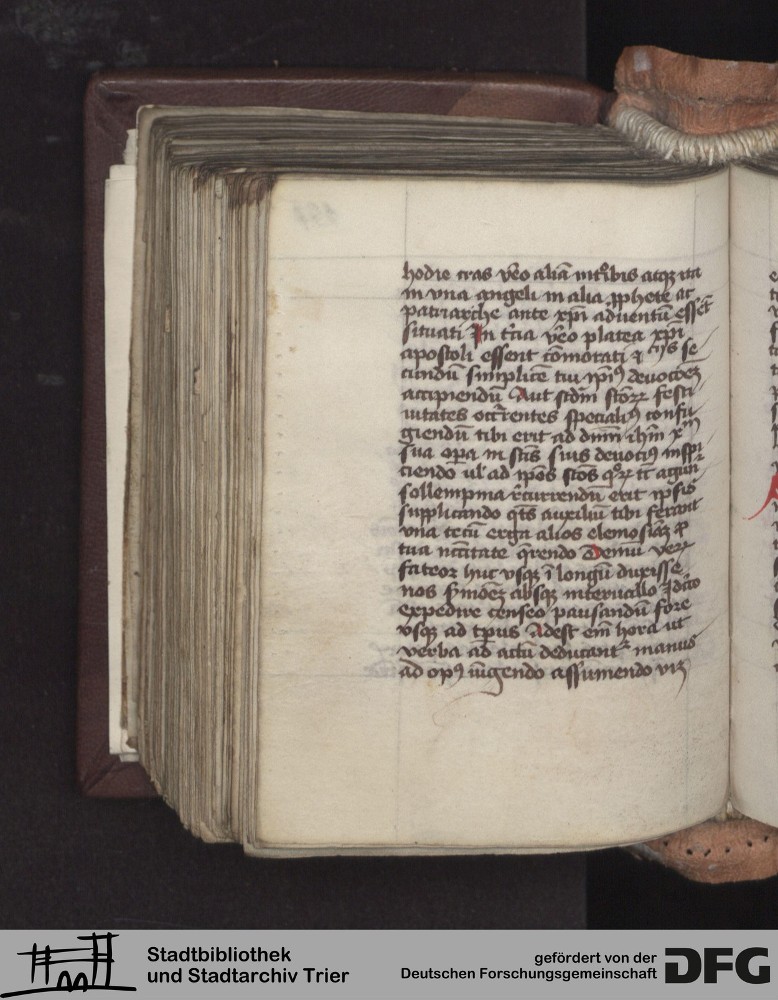 hodie cras v̄o aliā int᷑bis atqꝫ ita
in vna angeli in alia ꝓphete ac
patriarche ante xp̄i aduentū esset
situati In t̄cia v̄o platea xp̄i
apostoli essent cōmorati ⁊ sic se
cundū simplicē tui ip̄iꝰ deuocōeꝫ
accipiendū Aut scd̄m sc̄oꝝ festi
uitates occ̄rentes specialiꝰ confu
giendū tibi erit ad dn̄m ihm̄ xm̄
sua oꝑa in sc̄is suis deuociꝰ inspi
ciendo ul̓ ad ip̄os sc̄os qꝝ tc̄ agun
sollempnia r̄currendū erit ip̄sis
supplicando qt̄s auxiliū tibi ferant
vna tecū erga alios elemosiā ꝓ
tua nc̄citate q̄rendo Demū veꝝ
fateor huc vsqꝫ ī longū duxisse
nos s̄moēꝫ absqꝫ interuallo Id̄cō
expedire censeo pausandū fore
vsqꝫ ad tp̄us Adest em̄ hora ut
verba ad actū deducant᷑ manus
ad opꝰ iūgendo assumendo viꝫ
Stadtbibliothek
und Stadtarchiv Trier
gefördert von der
Deutschen Forschungsgemeinschaft
DFG